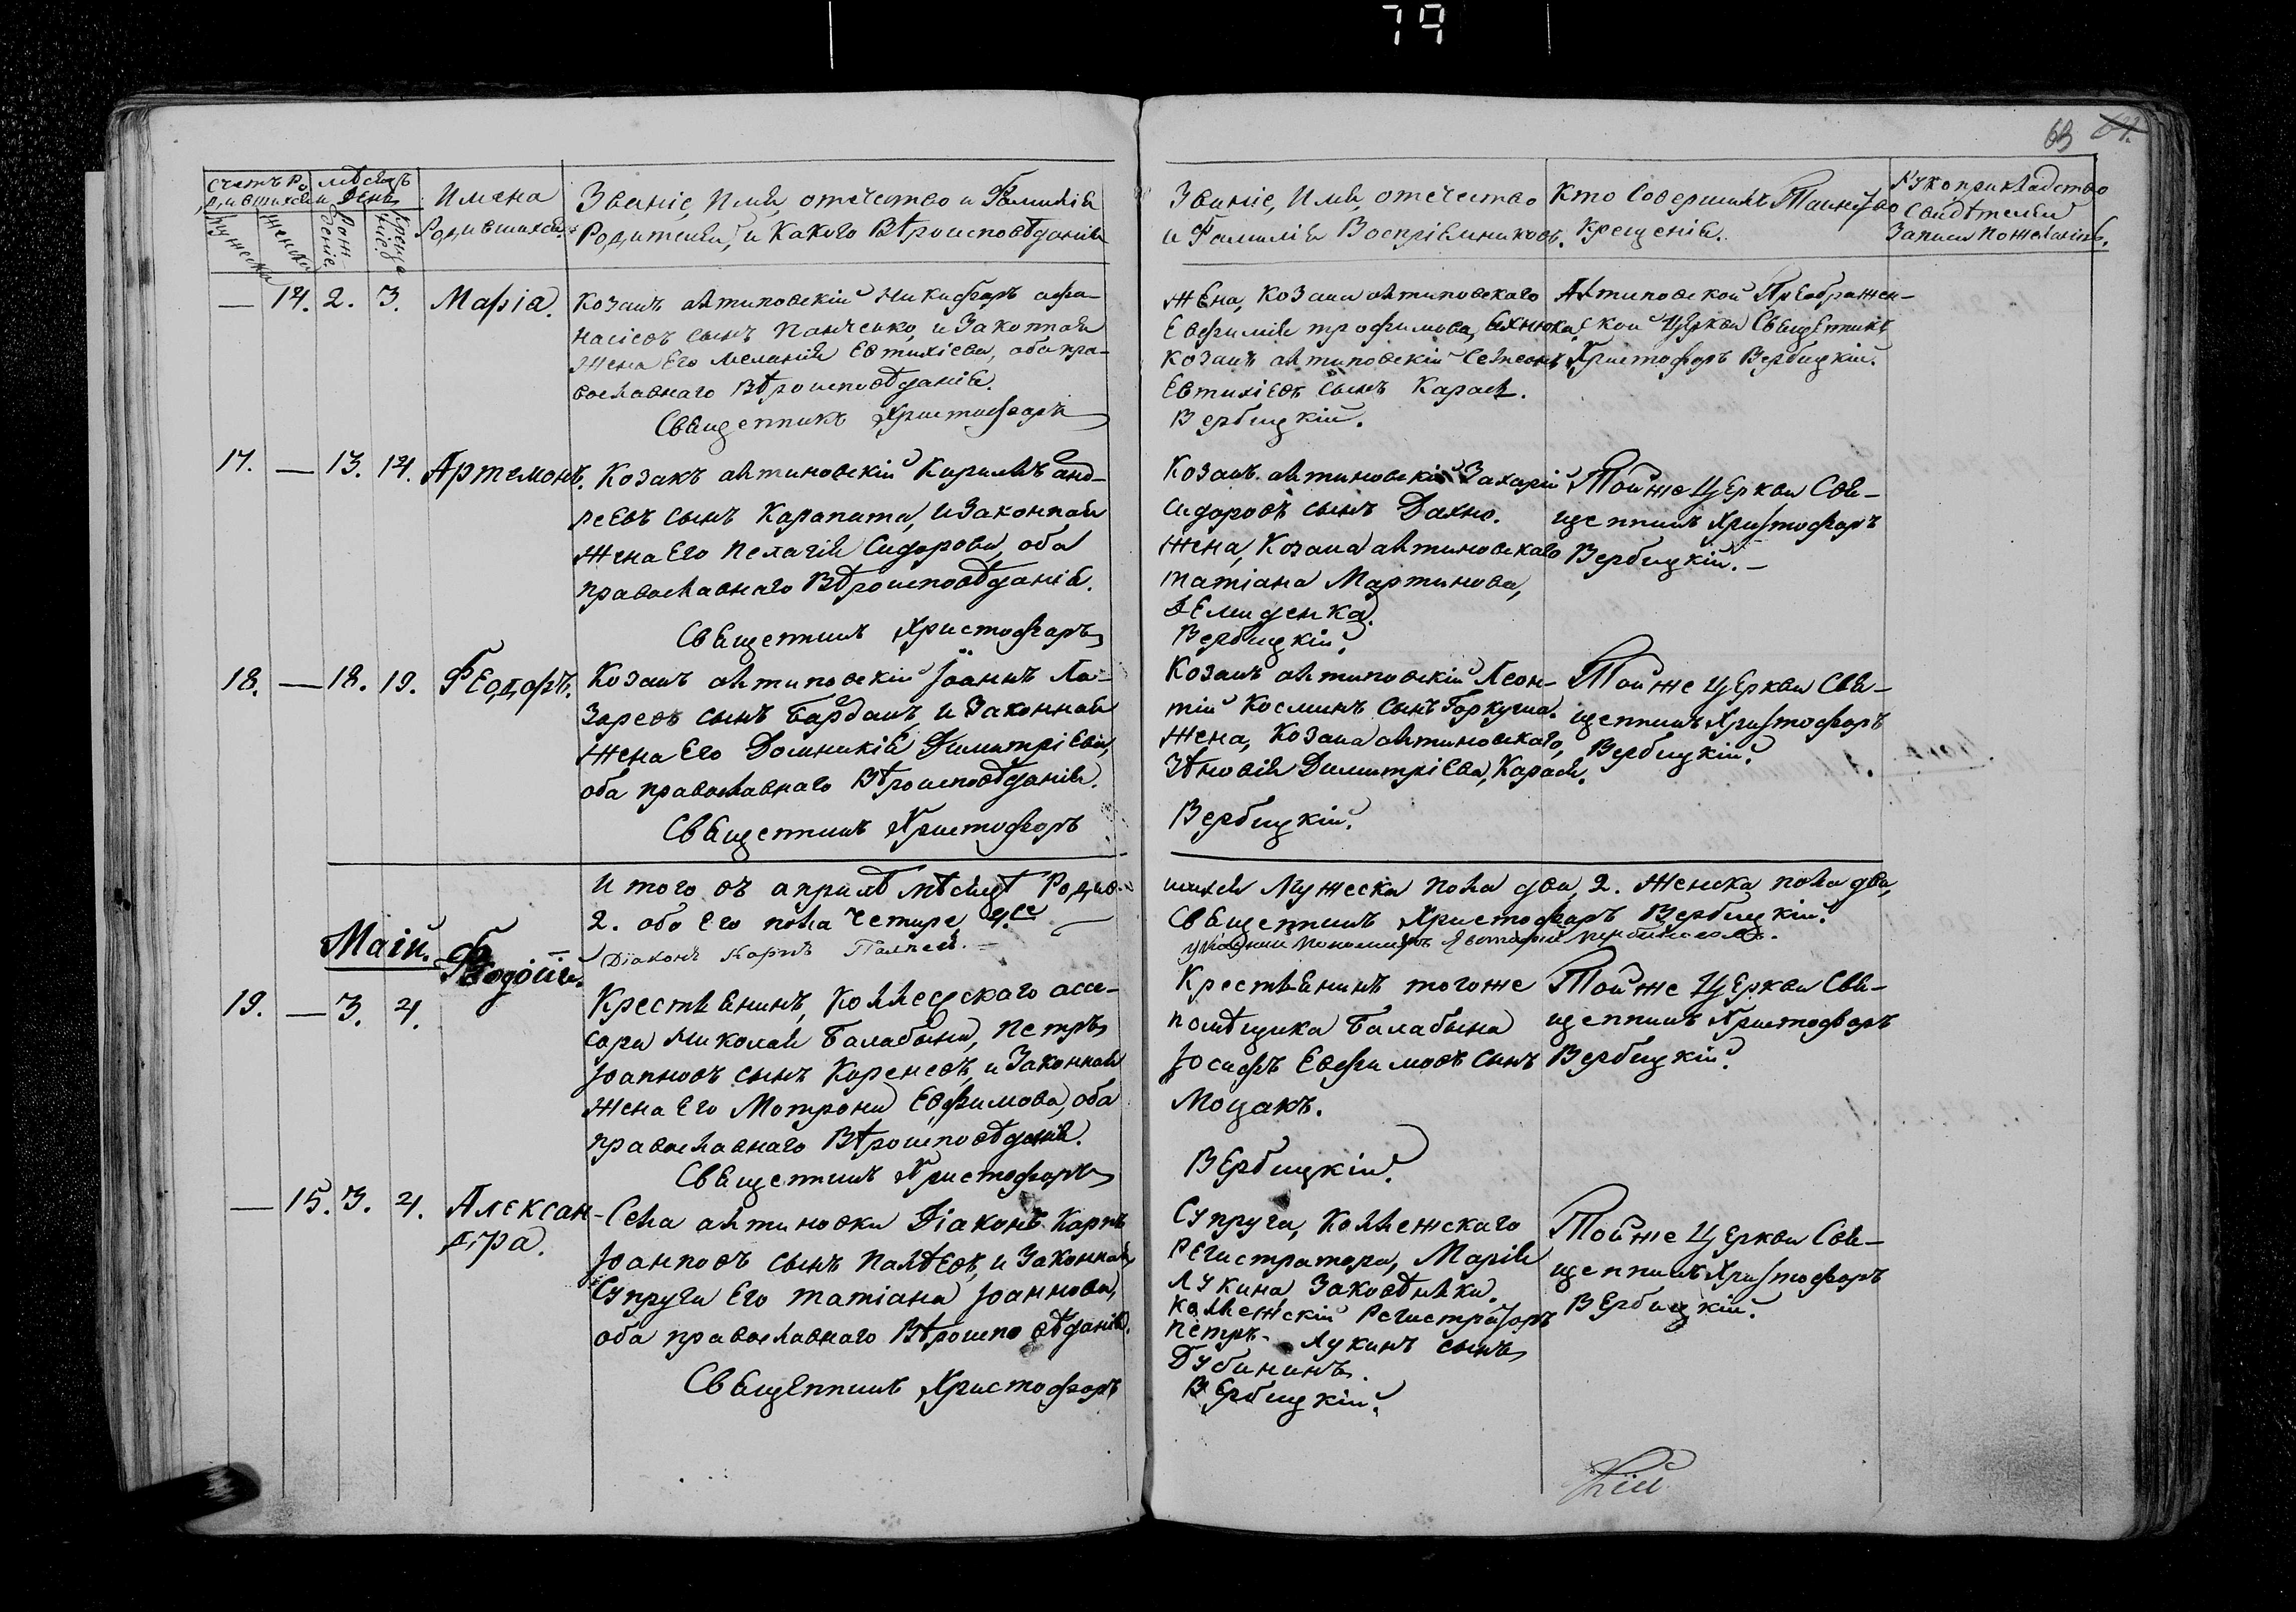 79
63 64.
Счетъ Ро
дившихся
мѣсяцъ
и день
Мужеска
Женска
Рож-
деніе
Креще
ніе
Имена
Родившихся.
Званіе, Имя, отечество и Фамилія
Родителей, и Какого Вѣроисповѣданія
Званіе, Имя, отечество
и Фамилія Воспріемниковъ.
Кто Совершилъ Таинство
Крещенія.
Рукоприкладство
Свидѣтелей
Записи по желанію.
— 14. 2. 3. Марія.
Козакъ антиповскій Никифоръ афа-
насіевъ сынъ Панченко, и Законная
жена Его Меланія Евтихіева, оба пра-
вославнаго Вѣроисповѣданія.
Священникъ Христофоръ
Жена, Козака антиповскаго
Евфимія трофимова,
Козакъ антиповскій Семеонъ
Евтихіевъ сынъ Карась.
Вербицкій.
Антиповской Преображен-
ской Церкви Священникъ
Христофоръ Вербицкій.
17. — 13. 14. Артемонъ.
Козакъ антиповскій Кирилъ анд-
реевъ сынъ Карапата, и Законная
жена Его Пелагія Сидорова, оба
православнаго Вѣроисповѣданія.
Священникъ Христофоръ
Козакъ антиповскій Захарій
Сидоровъ сынъ Дахно.
Жена, Козака антиповскаго
татіана Мартинова,
демиденка.
Вербицкій.
Тойже Церкви Свя-
щенникъ Христофоръ
Вербицкій. —
18. — 18. 19. Феодоръ.
Козакъ антиповскій Іоаннъ Ла-
заревъ сынъ Бардакъ, и Законная
жена Его Домникія Димитріева,
оба православнаго Вѣроисповѣданія.
Священникъ Христофоръ
Козакъ антиповскій Леон-
тій Косминъ сынъ Горкуша.
Жена, Козака антиповскаго,
Зѣновія Димитріева, Карася.
Вербицкій.
Тойже Церкви Свя-
щенникъ Христофоръ
Вербицкій.
Итого въ априлѣ мѣсяцѣ Родив-
шихся Мужеска пола два, 2. Женска пола два,
2. обоего пола четыре 4.
Священникъ Христофоръ Вербицкій.
Діаконъ Карпъ Палѣевъ. —
Май.
19. — 3. 4. Феодосій.
Крестьянинъ, Коллежскаго ассе-
сора Николая Балабына, Петръ
Іоанновъ сынъ Кореневъ, и Законная
жена Его Мотрона Евфимова, оба
православнаго Вѣроисповѣданія.
Священникъ Христофоръ
Крестьянинъ тогоже
помѣщика Балабына
Іосифъ Евфимовъ сынъ
Моцакъ.
Вербицкій.
Тойже Церкви Свя-
щенникъ Христофоръ
Вербицкій.
— 15. 3. 4. Алексан-
дра.
Села антиповки Діаконъ Карпъ
Іоанновъ сынъ Палѣевъ, и Законная
Супруга Его татіана Іоаннова,
оба православнаго Вѣроисповѣданія.
Священникъ Христофоръ
Супруга, Коллежскаго
Регистратора, Марія
Лукина
Коллежскій Регистраторъ
Петръ Лукинъ сынъ
Дубининъ.
Вербицкій.
Тойже Церкви Свя-
щенникъ Христофоръ
Вербицкій.
кій